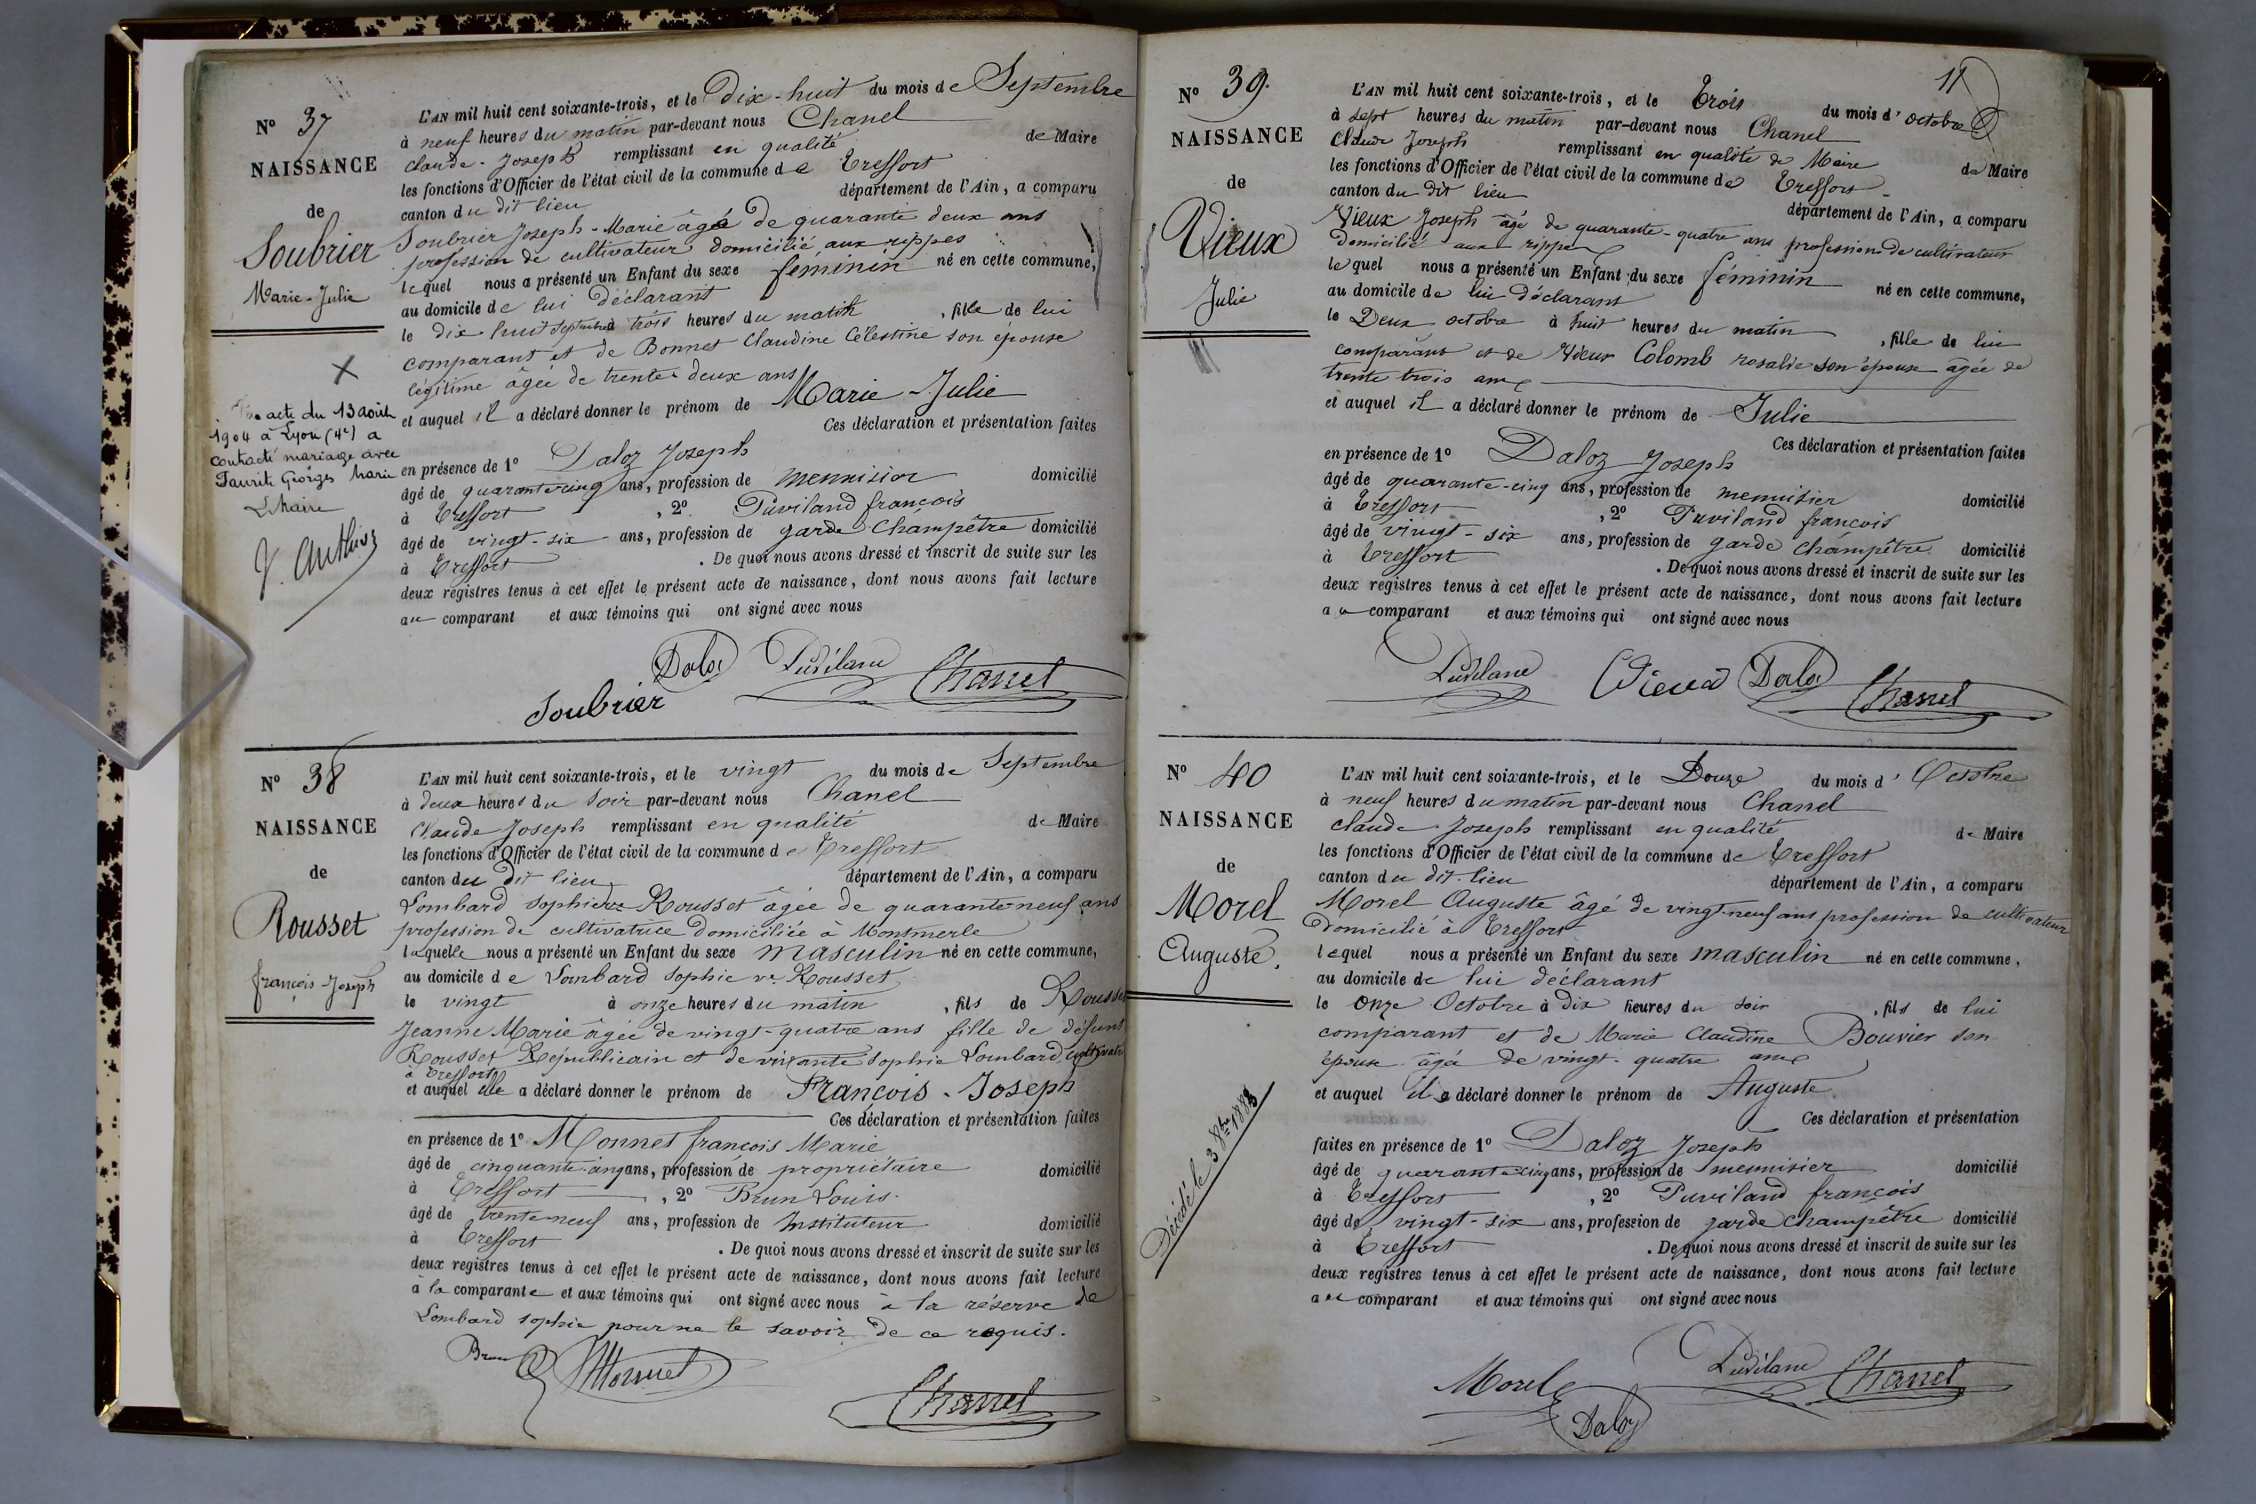 N° 37
NAISSANCE
de
Soubrier
Marie-Julie
acte du 13 août
1904 à Lyon (4e) a
contracté mariage avec
Georges Marie
L. Maire
L'AN mil huit cent soixante-trois, et le Dix-huit du mois de Septembre
à neuf heures du matin par-devant nous Chanel
Claude-Joseph remplissant en qualité de Maire
les fonctions d'Officier de l'état civil de la commune de Treffort
canton du dit lieu département de l'Ain, a comparu
Soubrier Joseph-Marie âgé de quarante deux ans
profession de cultivateur domicilié aux rippes
lequel nous a présenté un Enfant du sexe féminin né en cette commune,
au domicile de lui déclarant
le dix huit septembre à trois heures du matin, fille de lui
comparant et de Bonnet Claudine Célestine son épouse
légitime âgée de trente deux ans
et auquel il a déclaré donner le prénom de Marie-Julie
Ces déclaration et présentation faites
en présence de 1° Daloz Joseph
âgé de quarante cinq ans, profession de menuisier domicilié
à Treffort, 2° Puviland françois
âgé de vingt-six ans, profession de garde Champêtre domicilié
à Treffort. De quoi nous avons dressé et inscrit de suite sur les
deux registres tenus à cet effet le présent acte de naissance, dont nous avons fait lecture
au comparant et aux témoins qui ont signé avec nous
Daloz Puvilland Chanel
Soubrier
N° 38
NAISSANCE
de
Rousset
françois-Joseph
L'AN mil huit cent soixante-trois, et le vingt du mois de Septembre
à deux heures du soir par-devant nous Chanel
Claude Joseph remplissant en qualité de Maire
les fonctions d'Officier de l'état civil de la commune de Treffort
canton du dit lieu département de l'Ain, a comparu
Lombard Sophie ve Rousset âgée de quarante neuf ans
profession de cultivatrice domiciliée à Montmerle
laquelle nous a présenté un Enfant du sexe masculin né en cette commune,
au domicile de Lombard Sophie ve Rousset
le vingt à onze heures du matin, fils de Rousset
Jeanne Marie âgée de vingt-quatre ans fille de défunt
Rousset Républicain et de vivante Sophie Lombard
à Treffort
et auquel elle a déclaré donner le prénom de François-Joseph
Ces déclaration et présentation faites
en présence de 1° Monnet françois Marie
âgé de cinquante cinq ans, profession de propriétaire domicilié
à Treffort, 2° Brun Louis
âgé de trente neuf ans, profession de Instituteur domicilié
à Treffort. De quoi nous avons dressé et inscrit de suite sur les
deux registres tenus à cet effet le présent acte de naissance, dont nous avons fait lecture
à la comparante et aux témoins qui ont signé avec nous à la réserve de
Lombard sophie pour ne le savoir de ce requis.
Brun Monnet
Chanel
11
N° 39.
NAISSANCE
de
Vieux
Julie
L'AN mil huit cent soixante-trois, et le Trois du mois d'octobre
à sept heures du matin par-devant nous Chanel
Claude Joseph remplissant en qualité de Maire de Maire
les fonctions d'Officier de l'état civil de la commune de Treffort
canton du dit lieu département de l'Ain, a comparu
Vieux Joseph âgé de quarante-quatre ans profession de cultivateur
domicilié aux rippes
lequel nous a présenté un Enfant du sexe féminin né en cette commune,
au domicile de lui déclarant
le Deux octobre à huit heures du matin, fille de lui
comparant et de Vieux Colomb rosalie son épouse âgée de
trente trois ans
et auquel il a déclaré donner le prénom de Julie
Ces déclaration et présentation faites
en présence de 1° Daloz Joseph
âgé de quarante-cinq ans, profession de menuisier domicilié
à Treffort, 2° Puviland françois
âgé de vingt-six ans, profession de garde champêtre domicilié
à Treffort. De quoi nous avons dressé et inscrit de suite sur les
deux registres tenus à cet effet le présent acte de naissance, dont nous avons fait lecture
au comparant et aux témoins qui ont signé avec nous
Puvilland Vieux Daloz Chanel
N° 40
NAISSANCE
de
Morel
Auguste.
Décédé le 3 8bre 1888
L'AN mil huit cent soixante-trois, et le Douze du mois d'Octobre
à neuf heures du matin par-devant nous Chanel
Claude Joseph remplissant en qualité de Maire
les fonctions d'Officier de l'état civil de la commune de Treffort
canton du dit-lieu département de l'Ain, a comparu
Morel Auguste âgé de vingt-neuf ans profession de cultivateur
Domicilié à Treffort
lequel nous a présenté un Enfant du sexe masculin né en cette commune,
au domicile de lui déclarant
le onze Octobre à dix heures du soir, fils de lui
comparant et de Marie Claudine Bouvier son
épouse âgée de vingt-quatre ans
et auquel il a déclaré donner le prénom de Auguste
Ces déclaration et présentation
faites en présence de 1° Daloz Joseph
âgé de quarante-cinq ans, profession de menuisier domicilié
à Treffort, 2° Puviland françois
âgé de vingt-six ans, profession de garde champêtre domicilié
à Treffort. De quoi nous avons dressé et inscrit de suite sur les
deux registres tenus à cet effet le présent acte de naissance, dont nous avons fait lecture
au comparant et aux témoins qui ont signé avec nous
Morel Puvilland Chanel
Daloz